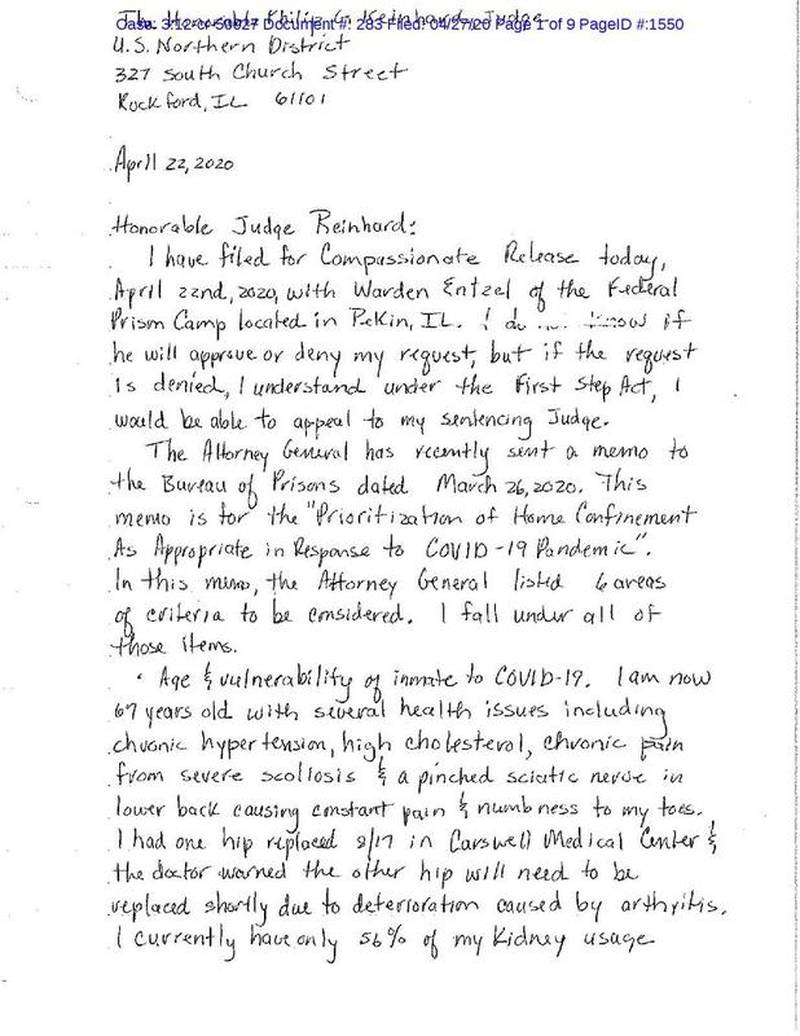 The Honorable Philip G. Reinhard, Judge
Case: 3:12-cr-50027 Document #: 283 Filed: 04/27/20 Page 1 of 9 PageID #:1550
U.S. Northern District
327 South Church Street
Rockford, IL 61101
April 22, 2020
Honorable Judge Reinhard:
I have filed for Compassionate Release today,
April 22nd, 2020, with Warden Entzel of the Federal
Prison Camp located in Pekin, IL. I do know if
he will approve or deny my request, but if the request
is denied, I understand under the First Step Act, I
would be able to appeal to my sentencing Judge.
The Attorney General has recently sent a memo to
the Bureau of Prisons dated March 26, 2020. This
memo is for the "Prioritization of Home Confinement
As Appropriate in Response to COVID-19 Pandemic".
In this memo, the Attorney General listed 6 areas
of criteria to be considered. I fall under all of
those items.
· Age & vulnerability of inmate to COVID-19. I am now
67 years old with several health issues including
chronic hypertension, high cholesterol, chronic pain
from severe scoliosis & a pinched sciatic nerve in
lower back causing constant pain & numbness to my toes.
I had one hip replaced 8/17 in Carswell Medical Center &
the doctor warned the other hip will need to be
replaced shortly due to deterioration caused by arthritis.
I currently have only 56% of my Kidney usage